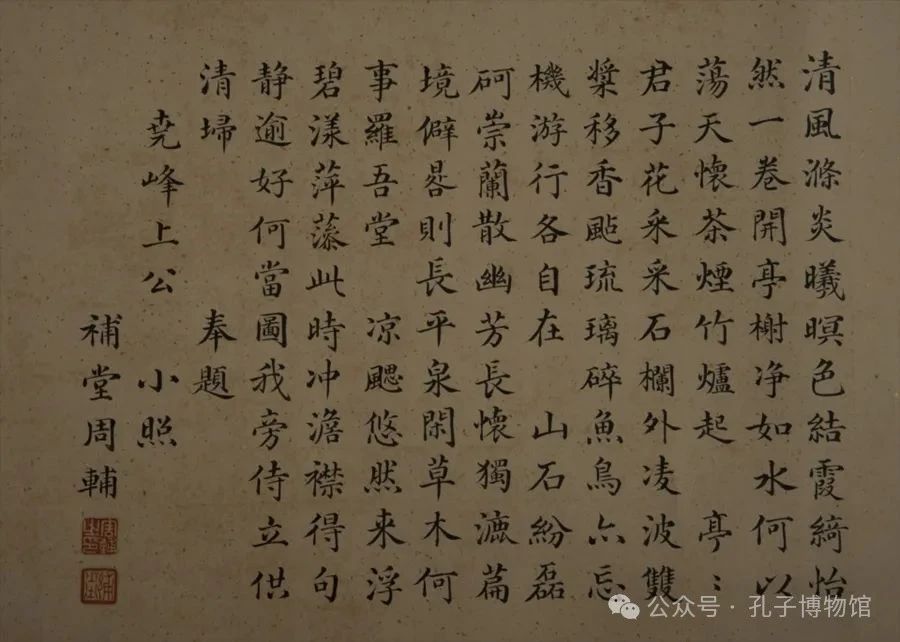 清風滌炎曦暝色結霞綺怡
然一卷開亭榭净如水何以
蕩天懷茶煙竹爐起 亭〻
君子花采采石欄外凌波雙
槳移香颭琉璃碎魚鳥亦忘
機游行各自在 山石紛磊
砢崇蘭散幽芳長懷獨漉篇
境僻晷則長平泉閑草木何
事羅吾堂 凉颸悠然来浮
碧漾萍藻此時冲澹襟得句
静逾好何當圖我旁侍立供
清埽 奉題
尭峰上公 小照
補堂周輔
公众号 · 孔子博物馆